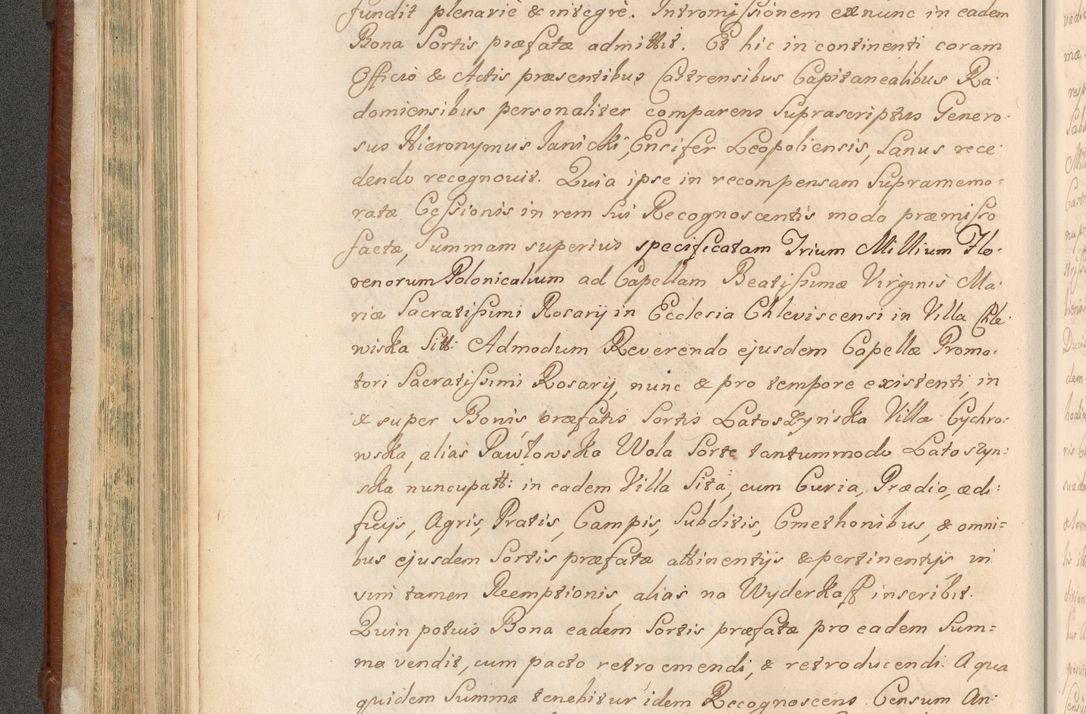 fundit plenarie & integre. Intromissionem ex nunc in eadem
Bona Sortis præfatæ admittit. Et hic in continenti coram
Officio & Actis præsentibus Castrensibus Capitanealibus Ra-
domiensibus personaliter comparens Suprascriptus Genero-
sus Hieronymus Janicki, Ensifer Leopoliensis, Sanus rece-
dendo recognovit. Quia ipse in recompensam Supramemo-
ratæ Cessionis in rem Sui Recognoscentis modo præmisso
factæ, Summam superius specificatam Trium Millium Flo-
renorum Polonicalium ad Capellam Beatissimæ Virginis Ma-
riæ Sacratissimi Rosarij in Ecclesia Chleviscensi in Villa Chle-
wiska Sitt: Admodum Reverendo ejusdem Capellæ Promo-
tori Sacratissimi Rosarij, nunc & pro tempore existenti, in
& super Bonis præfatis Sortis Latoszynska Villæ Cychro-
wska, alias Pawłowska Wola Sorte tantummodo Latoszyn-
ska nuncupatt: in eadem Villa Sita, cum Curia, Prædio, ædi-
ficijs, Agris, Pratis, Campis, Subditis, Cmethonibus, & omni=
bus ejusdem Sortis præfatæ attinentijs & pertinentijs in
vim tamen Reemptionis, alias na Wyderkaff inscribit.
Quin potius Bona eadem Sortis præfatæ pro eadem Sum=
ma vendit, cum pacto retro emendi, & retroducendi. A qua
quidem Summa tenebitur idem Recognoscens Censum An-